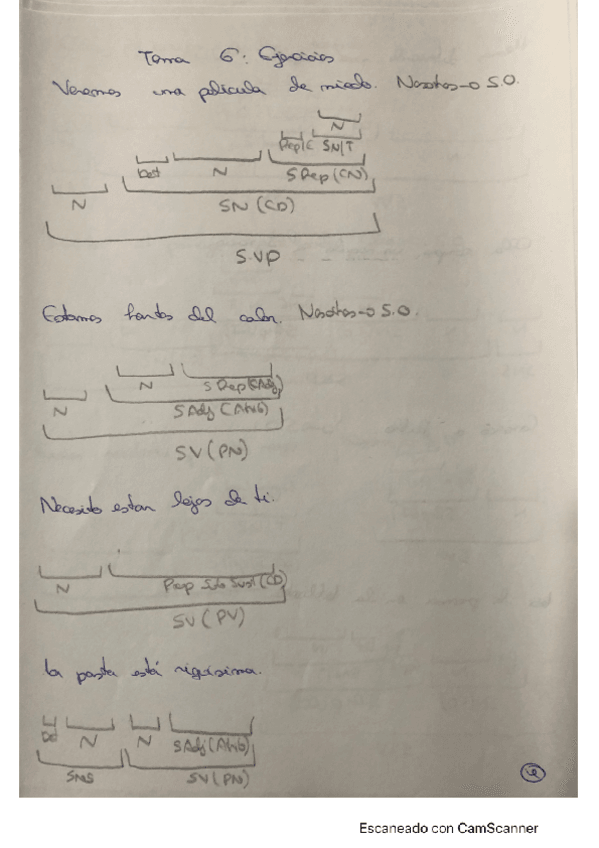 Tema 6: Ejercicios
Veremos una película de miedo. Nosotros→ S.O.
N
Prep|E SN|T
Det N S Prep (CN)
N SN (CD)
SVP
Estamos hartos del calor. Nosotros→ S.O.
N S Prep (CAdj)
N S Adj (Atrib)
SV (PN)
Necesito estar lejos de ti.
N Prop Sub Sust (CD)
SV (PV)
La pasta está riquísima.
Det N N S Adj (Atrib)
SNS SV (PN)
Escaneado con CamScanner